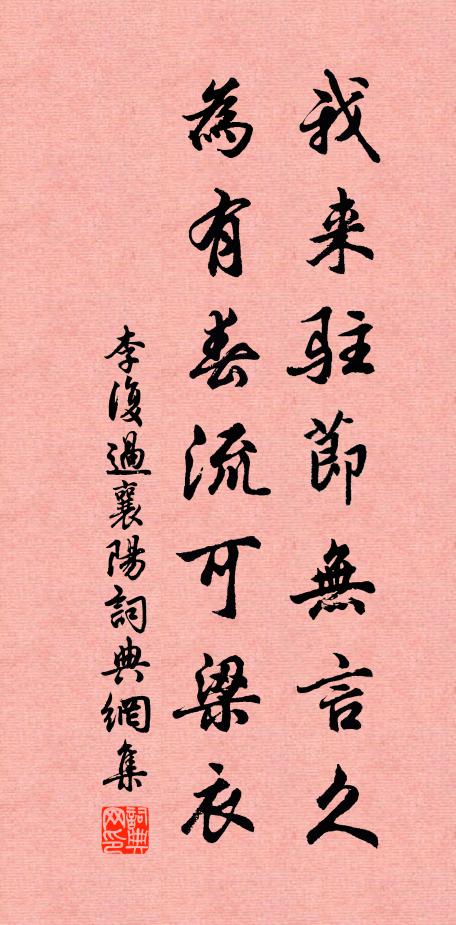 我来駐節無言久
為有春流可梁衣
李復過襄陽詞典網集
詞典网印